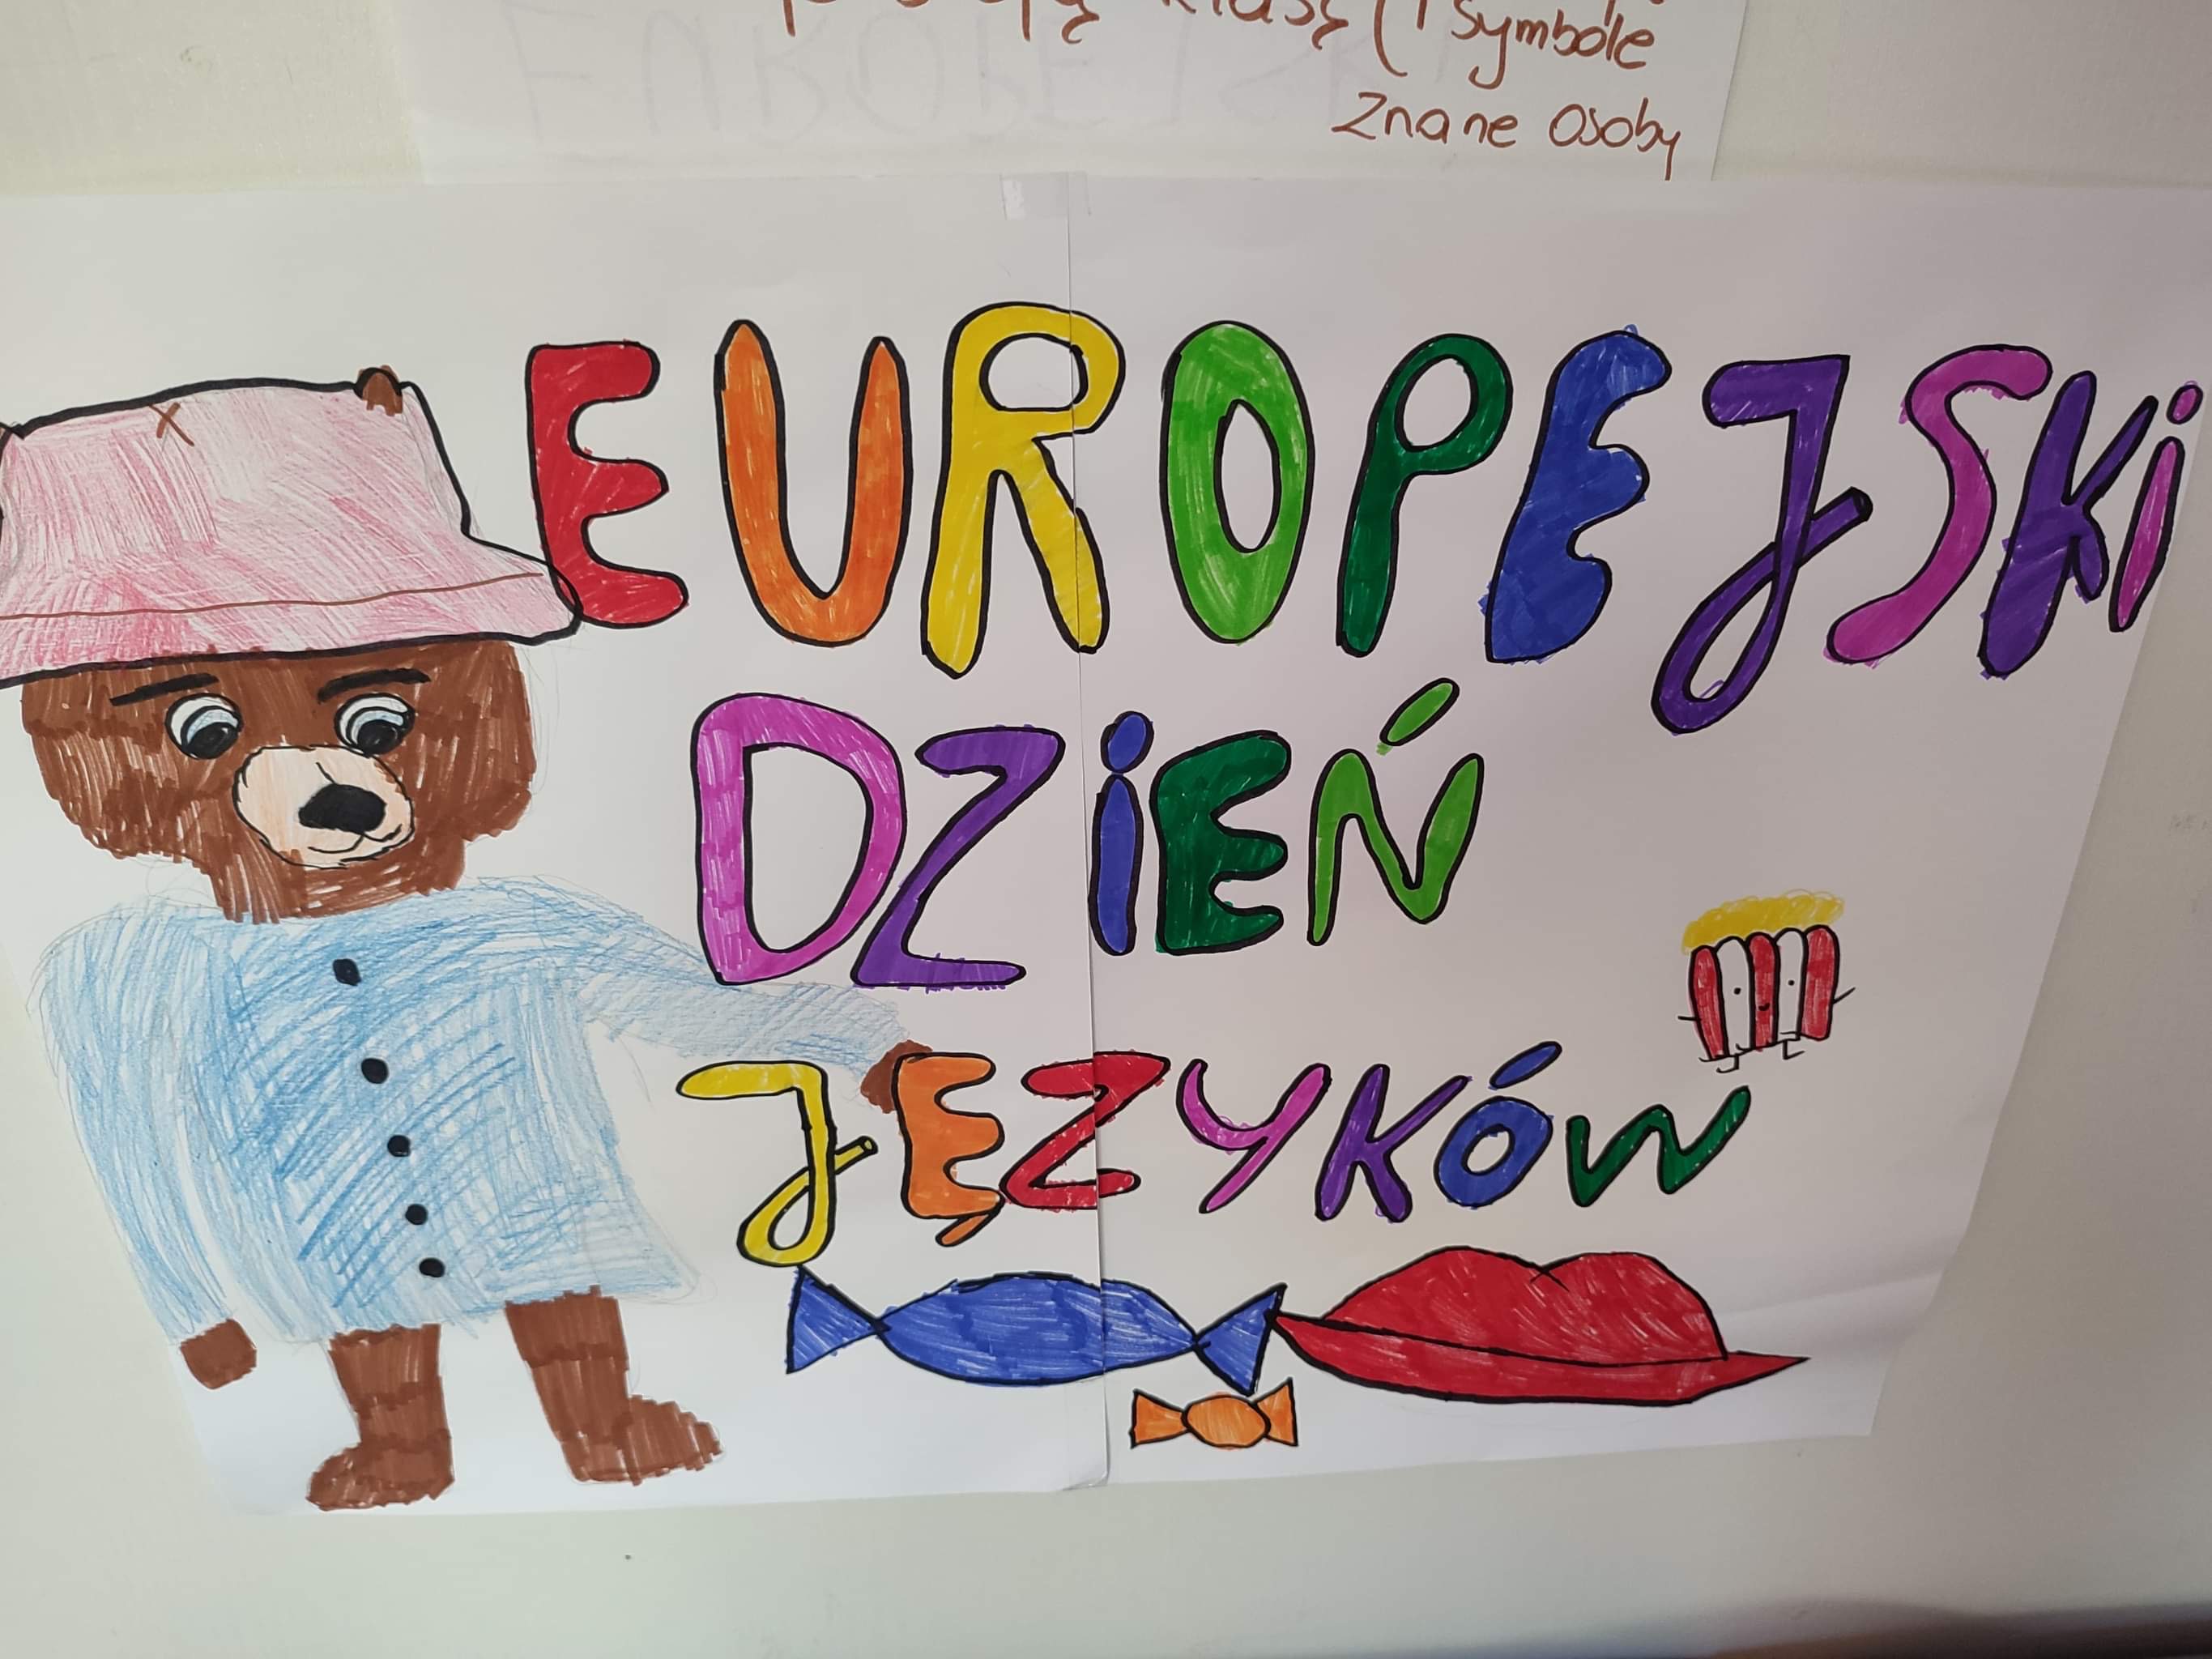 klasę ( i symbole
znane osoby
EUROPEJSKI
DZiEŃ
JĘZYKÓW